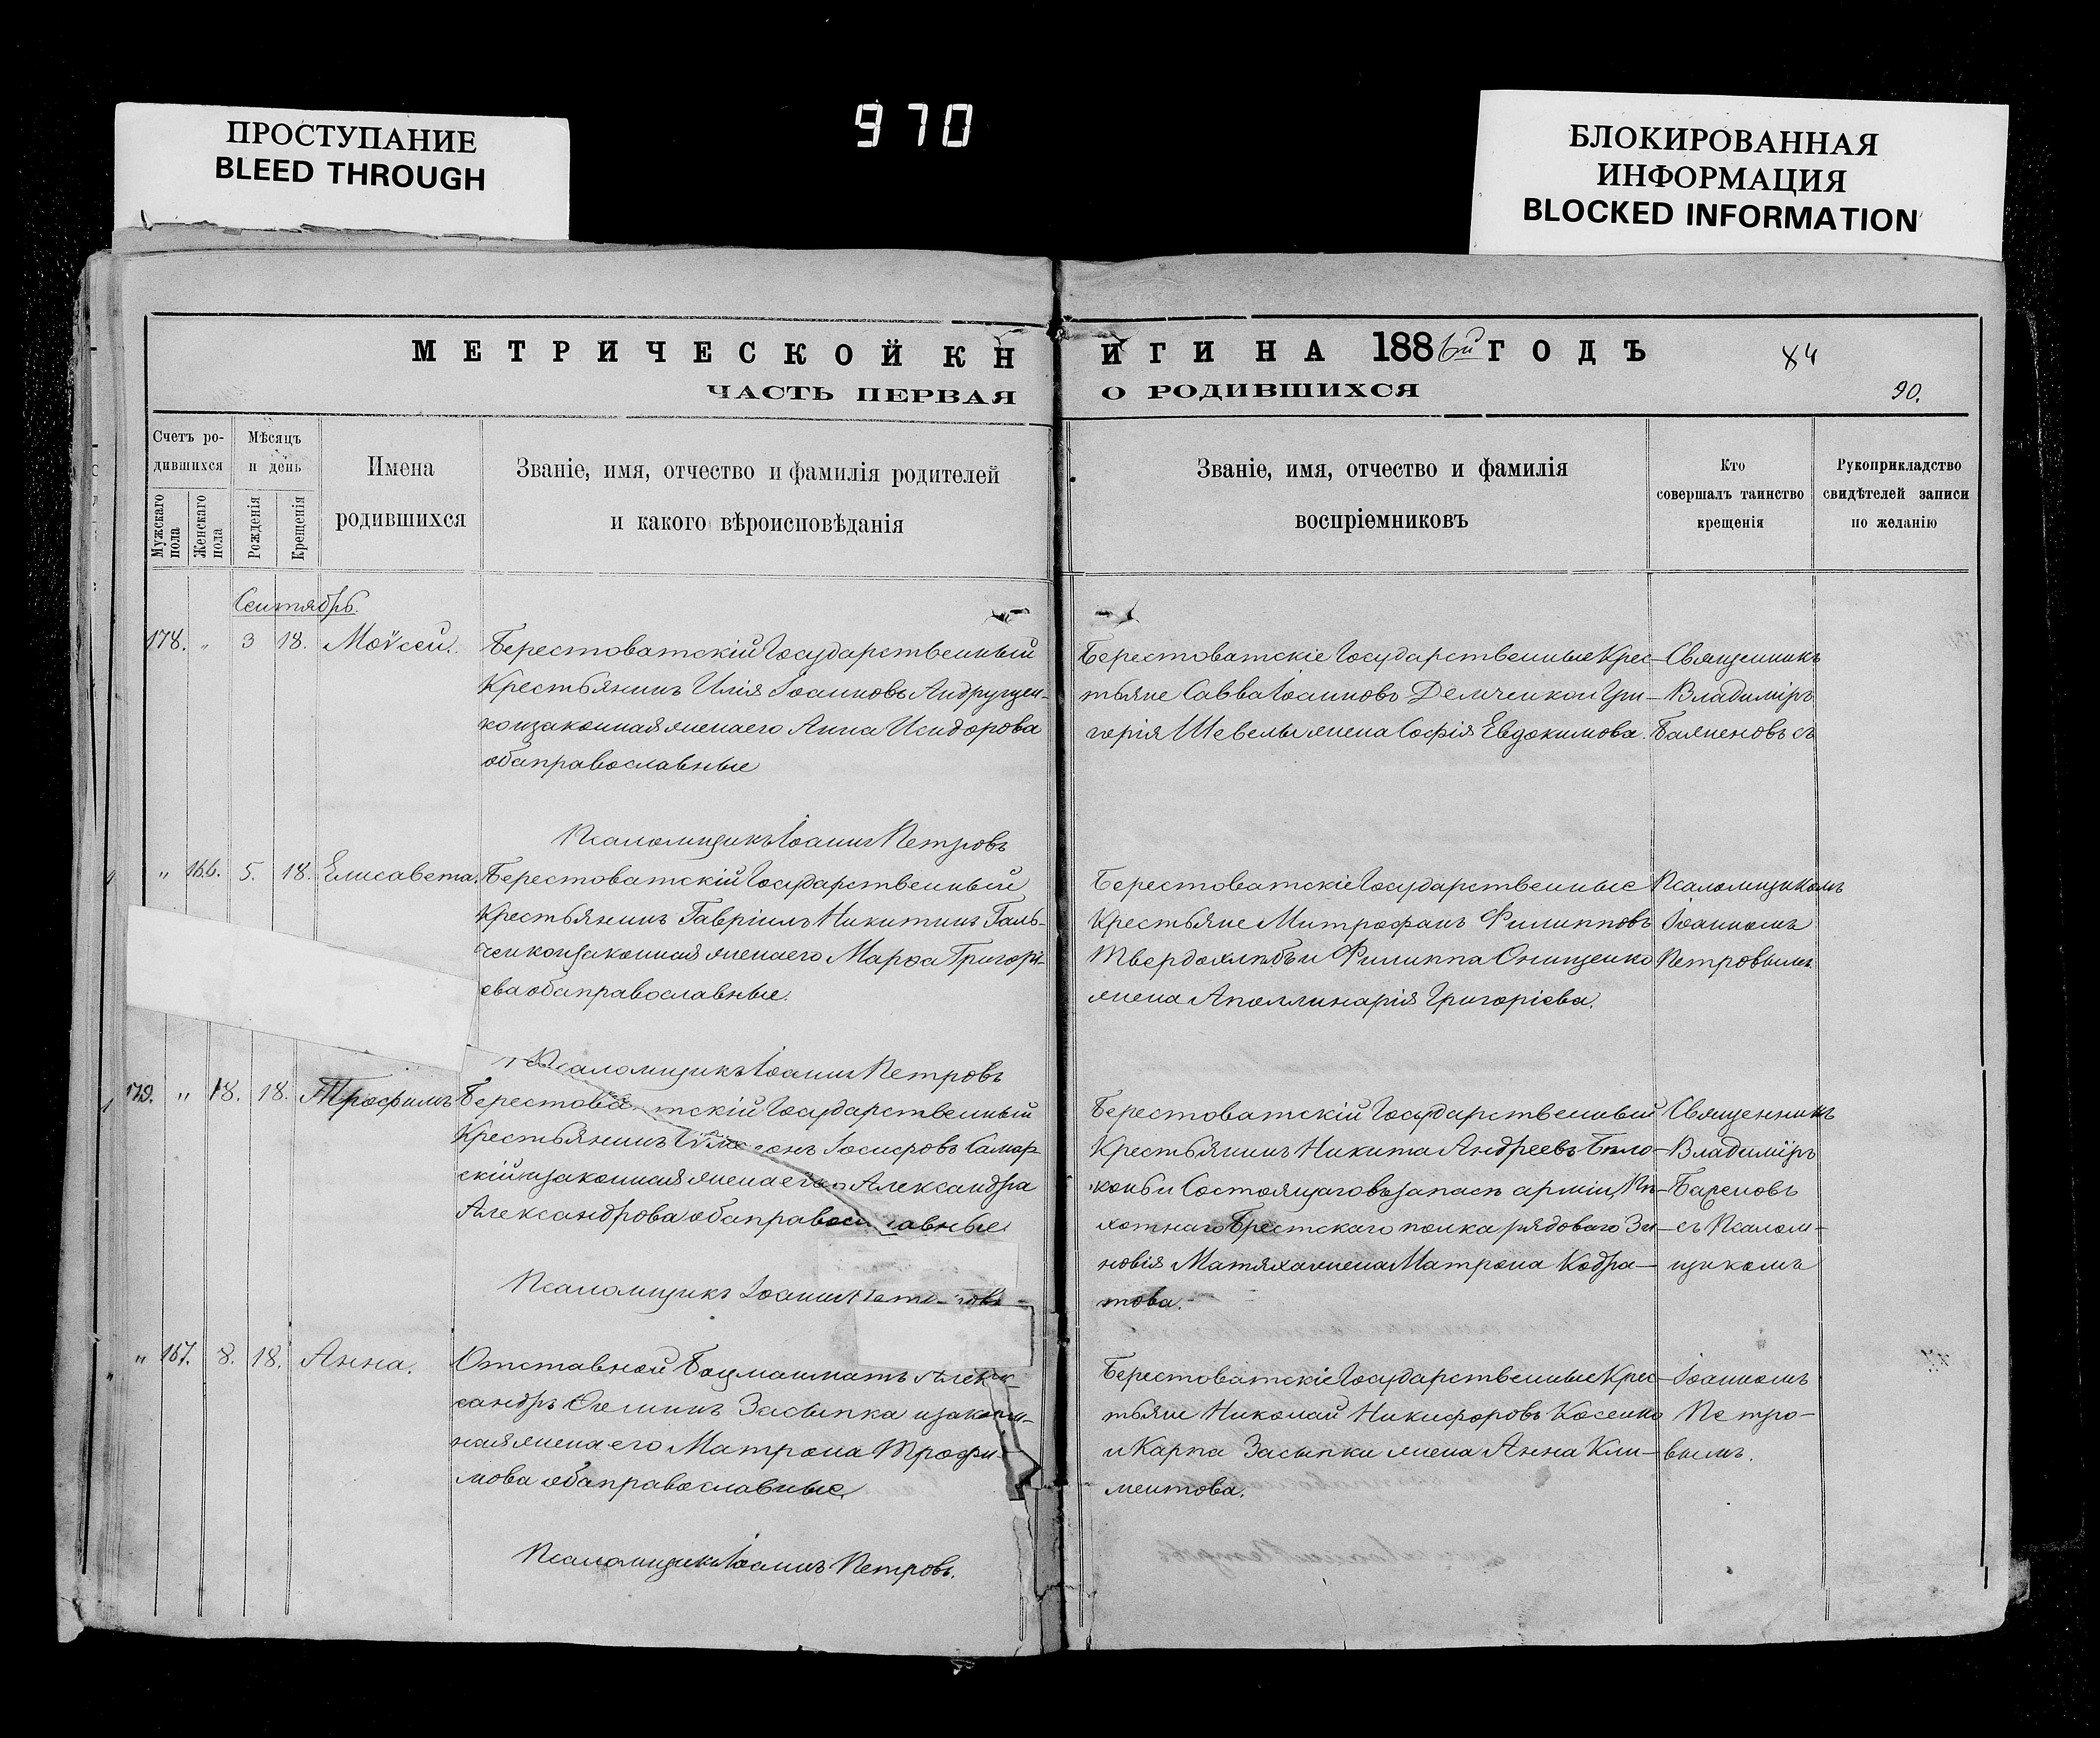 ПРОСТУПАНИЕ
BLEED THROUGH
970
БЛОКИРОВАННАЯ
ИНФОРМАЦИЯ
BLOCKED INFORMATION
МЕТРИЧЕСКОЙ КНИГИ НА 1886й ГОДЪ
84
ЧАСТЬ ПЕРВАЯ О РОДИВШИХСЯ
90.
Счетъ ро-
дившихся
Мужскаго пола
Женскаго пола
Мѣсяцъ
и день
Рожденія
Крещенія
Имена
родившихся
Званіе, имя, отчество и фамилія родителей
и какого вѣроисповѣданія
Званіе, имя, отчество и фамилія
воспріемниковъ
Кто
совершалъ таинство
крещенія
Рукоприкладство
свидѣтелей записи
по желанію
Сентябрь.
178. " 3 18. Моѵсей.
Берестоватскій Государственный
Крестьянинъ Илія Іоанновъ Андрущен-
ко и законная жена его Анна Исидорова
оба православные
Псаломщикъ Іоаннъ Петровъ
Берестоватскіе Государственные Крес-
тьяне Савва Іоанновъ Демченко и Гри-
горія Шевелы жена Софія Евдокимова.
Священникъ
Владиміръ
Баженовъ съ
" 166. 5. 18. Елисавета.
Берестоватскій Государственный
Крестьянинъ Гавріилъ Никитинъ Галь-
ченко и законная жена его Марѳа Григорі-
ева оба православные.
Псаломщикъ Іоаннъ Петровъ
Берестоватскіе Государственные
Крестьяне Митрофанъ Филипповъ
Твердохлѣбъ и Филиппа Онищенко
жена Аполлинарія Григоріева.
Псаломщикомъ
Іоанномъ
Петровымъ.
179. " 18. 18. Трофимъ
Берестоватскій Государственный
Крестьянинъ Сѵмеонъ Іосифовъ Самар-
скій и законная жена его Александра
Александрова оба православные.
Псаломщикъ Іоаннъ Петровъ
Берестоватскій Государственный
Крестьянинъ Никита Андреевъ Бѣло-
конь и Состоящаго въ запасѣ арміи, Пѣ-
хотнаго Брестскаго полка рядоваго Зи-
новія Матяха жена Матрона Кодра-
това.
Священникъ
Владиміръ
Баженовъ
съ Псалом-
щикомъ
" 167. 8. 18. Анна.
Отставной Боцманматъ Алек-
сандръ Засыпка и закон-
ная жена его Матрона Трофи-
мова оба православные.
Псаломщикъ Іоаннъ Петровъ.
Берестоватскіе Государственные Крес-
тьяне Николай Никифоровъ Косенко
и Карпа Засыпки жена Анна Кли-
ментова.
Іоанномъ
Петро-
вымъ.